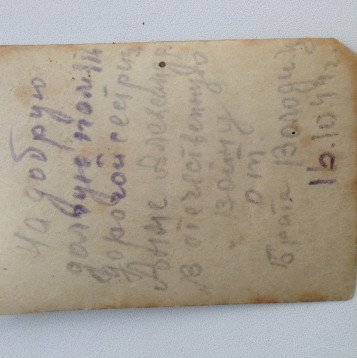 На добрую
долгую память
дорогой сестрице
Анне Алексеевне
В отечественную
войну
от.
Брата Володи
16.10.44 г